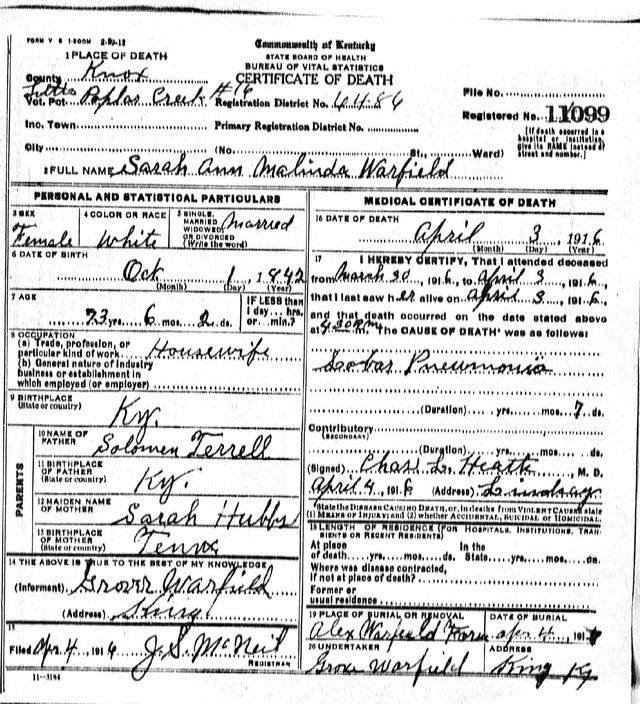 FORM V S 1-500M 2-29-12
Commonwealth of Kentucky
STATE BOARD OF HEALTH
BUREAU OF VITAL STATISTICS
CERTIFICATE OF DEATH
1 PLACE OF DEATH
County Knox
Vot. Pct. Poplar Creek #16
Registration District No. 6486
File No.
Registered No. 11099
Inc. Town
Primary Registration District No.
[If death occurred in a hospital or institution, give its NAME instead of street and number.]
City (No. St., Ward)
2 FULL NAME Sarah Ann Malinda Warfield
PERSONAL AND STATISTICAL PARTICULARS
3 SEX Female
4 COLOR OR RACE White
5 SINGLE, MARRIED, WIDOWED, OR DIVORCED (Write the word) Married
6 DATE OF BIRTH
Oct 1, 1842
(Month) (Day) (Year)
7 AGE
73 yrs. 6 mos. 2 ds.
IF LESS than 1 day... hrs. or... min.?
8 OCCUPATION
(a) Trade, profession, or particular kind of work Housewife
(b) General nature of industry business or establishment in which employed (or employer)
9 BIRTHPLACE
(State or country) Ky.
PARENTS
10 NAME OF FATHER Solomen Terrell
11 BIRTHPLACE OF FATHER (State or country) Ky.
12 MAIDEN NAME OF MOTHER Sarah Hubbs
13 BIRTHPLACE OF MOTHER (State or country) Tenn
14 THE ABOVE IS TRUE TO THE BEST OF MY KNOWLEDGE
(Informant) Grover Warfield
(Address) King
15
Filed Apr. 4, 1916 J. S. McNeil
REGISTRAR
11-3184
MEDICAL CERTIFICATE OF DEATH
16 DATE OF DEATH
April 3, 1916
(Month) (Day) (Year)
17 I HEREBY CERTIFY, That I attended deceased
from March 30, 1916, to April 3, 1916,
that I last saw her alive on April 3, 1916,
and that death occurred on the date stated above
at 4:30 P.m. The CAUSE OF DEATH* was as follows:
Lobar Pneumonia
(Duration) yrs. mos. 7 ds.
Contributory
(SECONDARY)
(Duration) yrs. mos. ds.
(Signed) Chas. L. Heath, M. D.
April 4, 1916 (Address) Lindsay
*State the DISEASE CAUSING DEATH, or, in deaths from VIOLENT CAUSES state (1) MEANS OF INJURY; and (2) whether ACCIDENTAL, SUICIDAL or HOMICIDAL.
18 LENGTH OF RESIDENCE (FOR HOSPITALS, INSTITUTIONS, TRANSIENTS OR RECENT RESIDENTS)
At place of death yrs. mos. ds. In the State yrs. mos. ds.
Where was disease contracted, If not at place of death?
Former or usual residence
19 PLACE OF BURIAL OR REMOVAL
DATE OF BURIAL
Alex Warfield Farm Apr. 4, 191
20 UNDERTAKER
ADDRESS
Grover Warfield King Ky